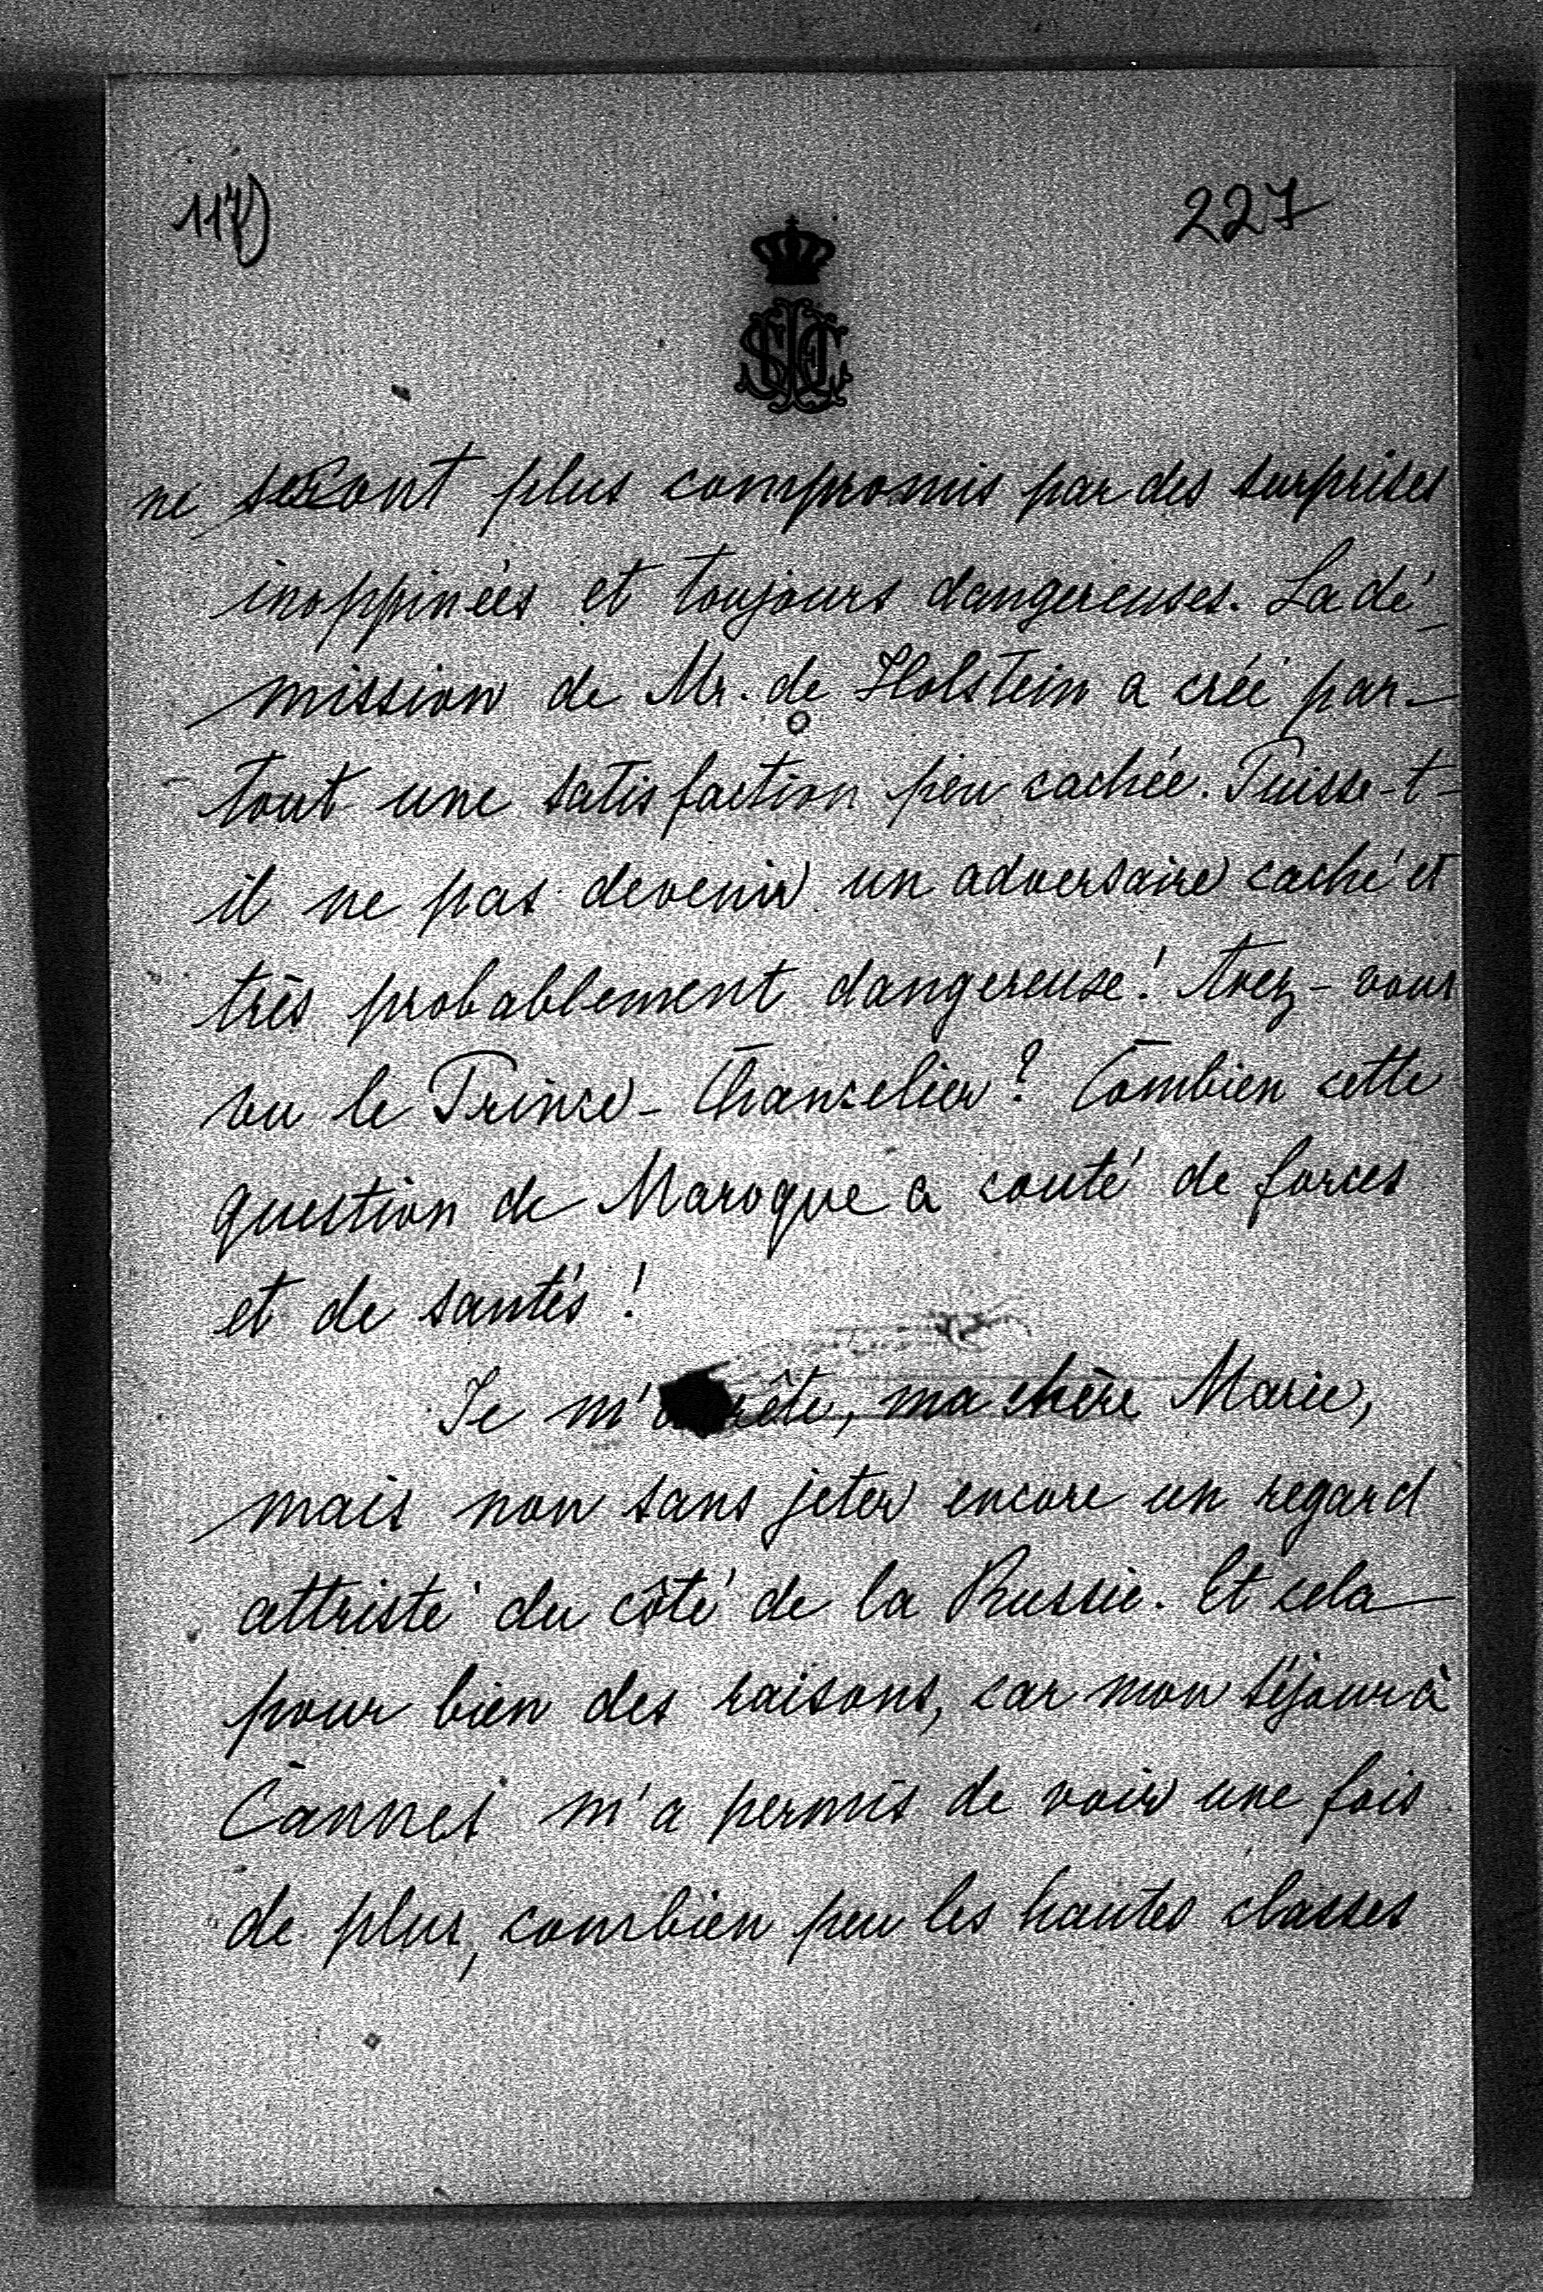 117) 227
ne seront plus compromis par des surprises
inoppinées et toujours dangereuses. La dé-
mission de Mr. de Holstein a créé par-
tout une satisfaction peu cachée. Puisse-t-
il ne pas devenir un adversaire caché et
très probablement dangereuse! Avez-vous
vu le Prince-Chancelier? Combien cette
question de Maroque a couté de forces
et de santés!
Je m'arrête, ma chère Marie,
mais non sans jeter encore un regard
attristé du côté de la Russie. Et cela
pour bien des raisons, car mon séjour à
Cannes m'a permis de voir une fois
de plus, combien peu les hautes classes